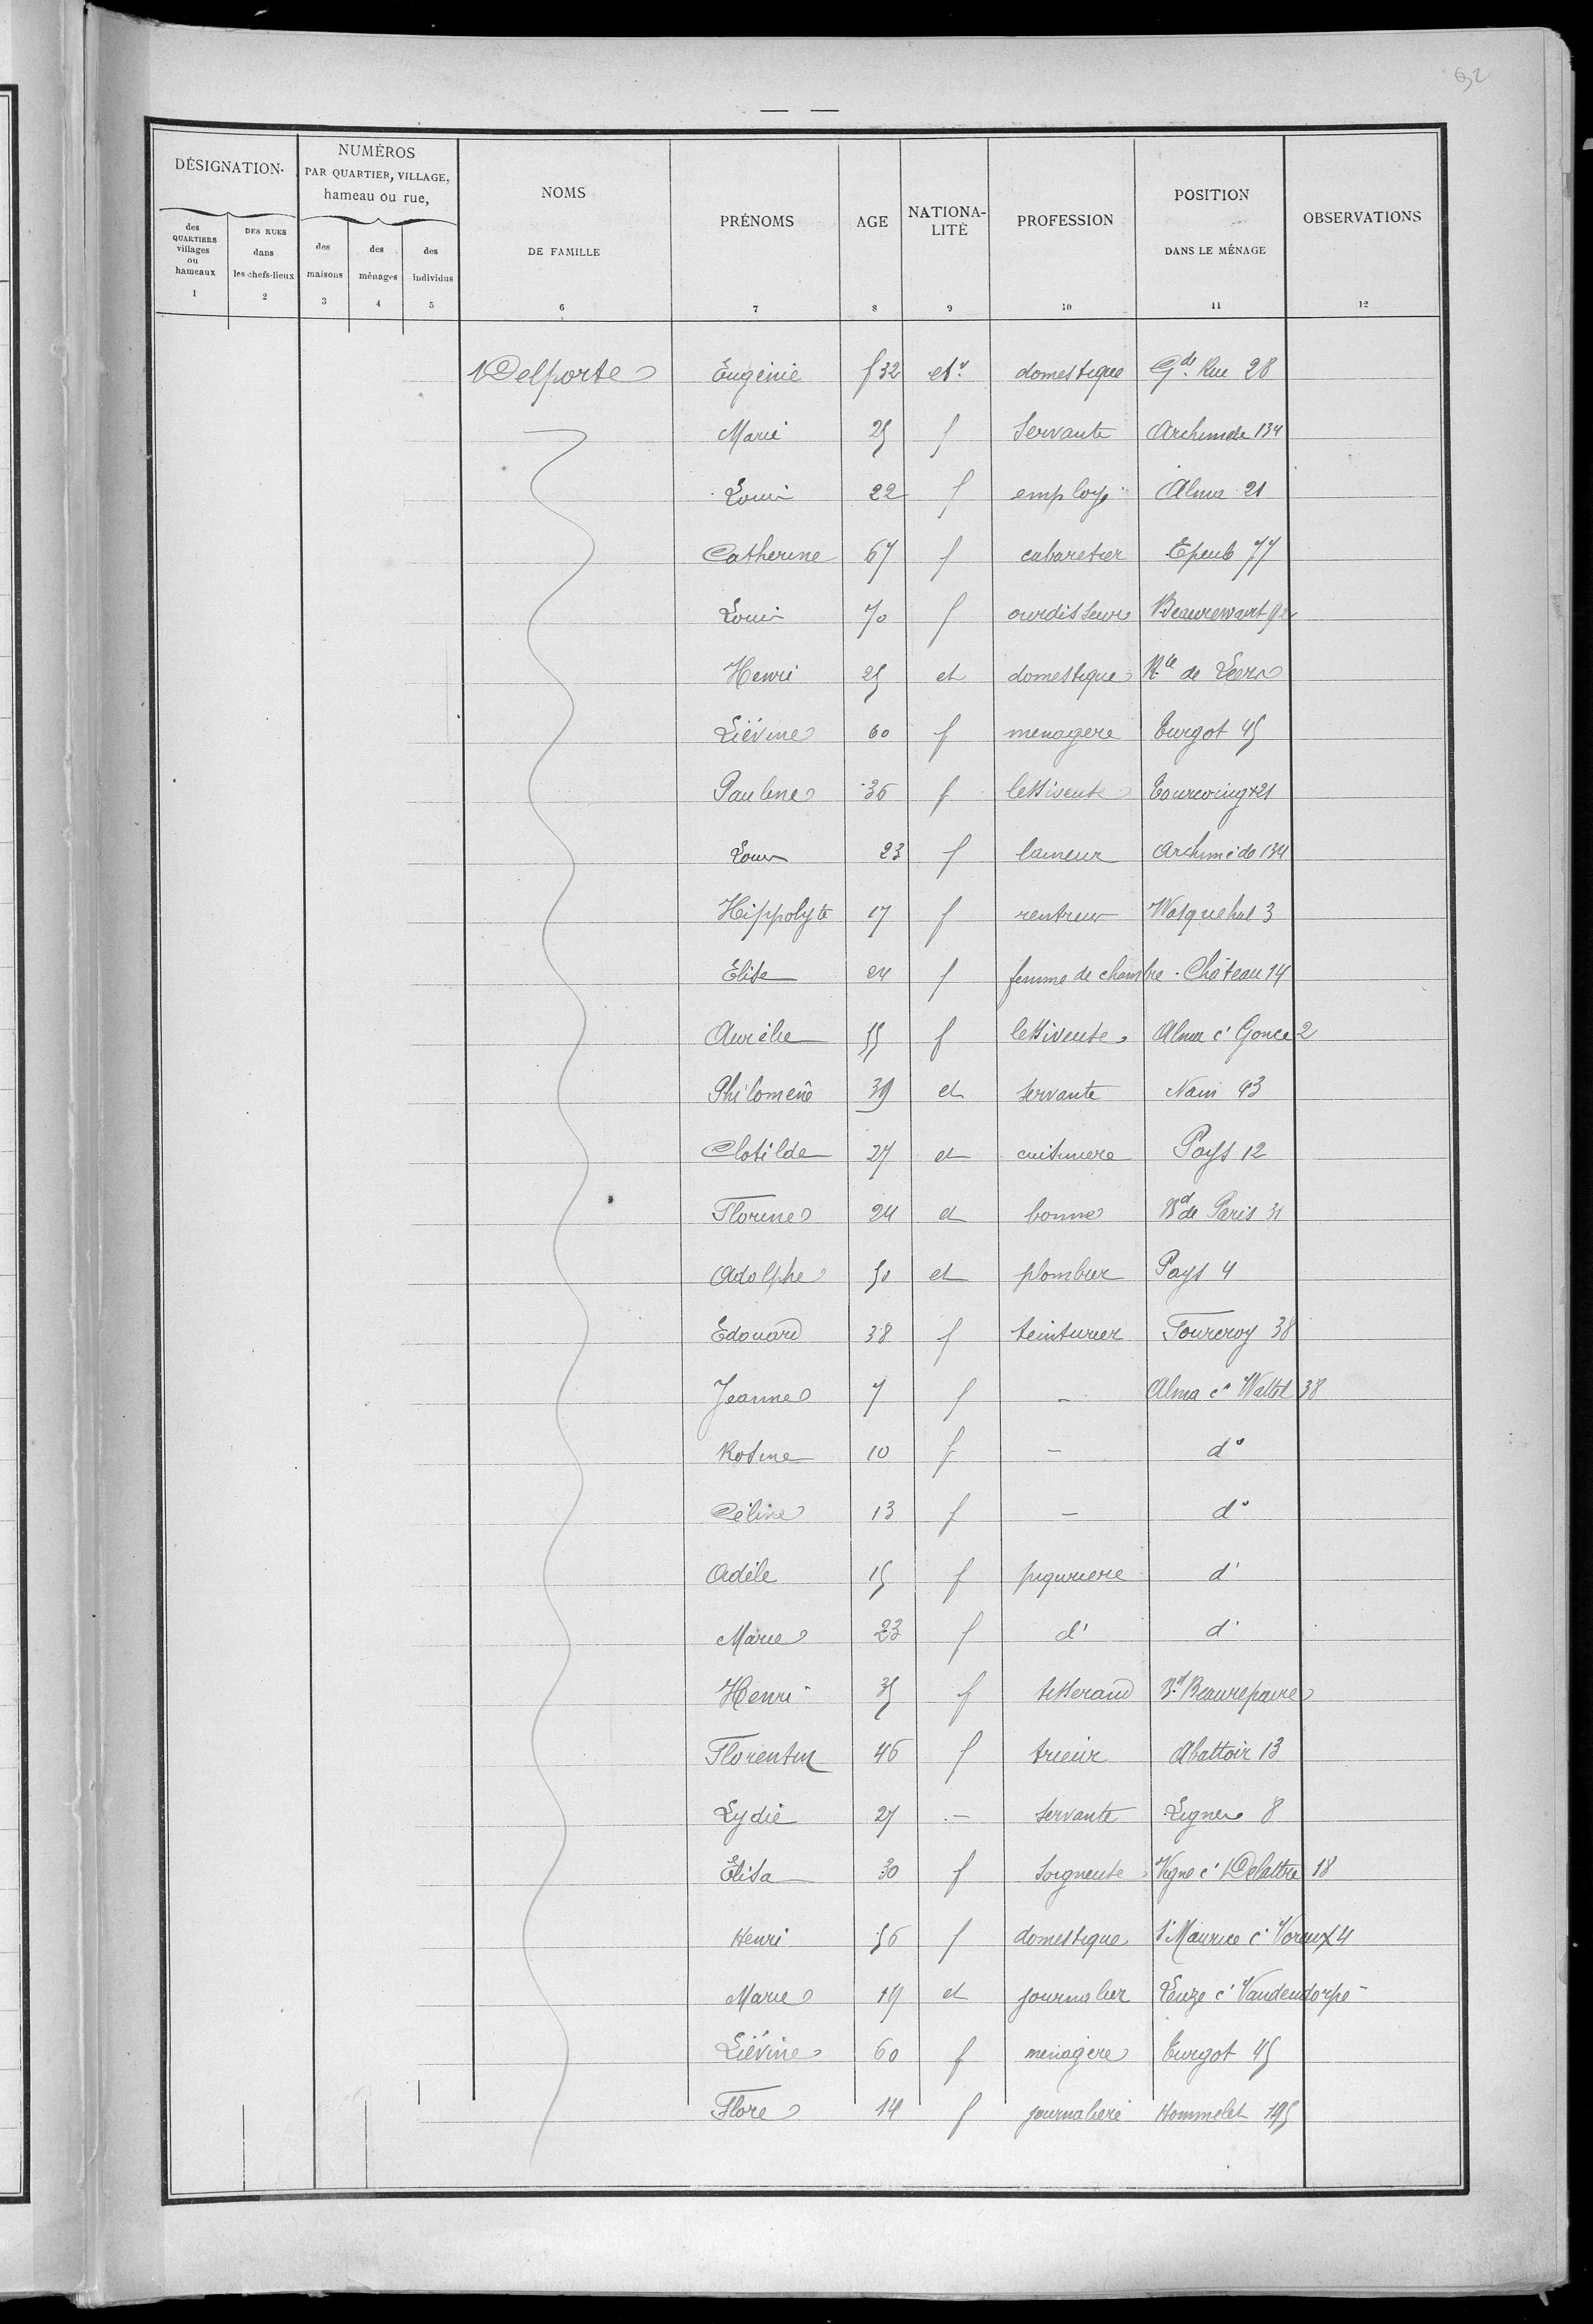 62
DÉSIGNATION.
des QUARTIERS villages ou hameaux
1
DES RUES dans les chefs-lieux
2
NUMÉROS PAR QUARTIER, VILLAGE, hameau ou rue,
des maisons
3
des ménages
4
des individus
5
NOMS DE FAMILLE
6
PRÉNOMS
7
AGE
8
NATIONA-LITÉ
9
PROFESSION
10
POSITION DANS LE MÉNAGE
11
OBSERVATIONS
12
Delporte Eugénie f 32 etr domestique Gde Rue 28
Marie 25 f Servante Archimede 134
Louis 22 f employé Alma 21
Catherine 67 f cabaretier Epeule 77
Louis 70 f ourdisseur Beaurewart 92
Henri 25 et domestique Rte de Leers
Liévine 60 f menagere Turgot 45
Pauline 36 f lessiveuse Tourcoing 121
Louis 23 f laineur Archimède 134
Hippolyte 17 f rentreur Wasquehal 3
Elise 24 f femme de chambre Château 14
Aurélie 55 f lessiveuse Alma c' Gonce 2
Philomène 39 et servante Nain 43
Clotilde 27 et cuisiniere Pays 12
Florine 24 et bonne Bd de Paris 31
Adolphe 50 et plombier Pays 4
Edouard 38 f teinturier Fourcroy 38
Jeanne 7 f - Alma c' Wattel 38
Rosine 10 f - d°
Céline 13 f - d°
Adèle 15 f piqurière d°
Marie 23 f d° d°
Henri 35 f tisserand Bd Beaurepaire
Florentin 46 f trieur Abattoir 13
Lydie 27 - servante Ligne 8
Elisa 30 f soigneuse Vigne c' Delattre 18
Henri 56 f domestique St Maurice c' Voreux 4
Marie 19 et journalier Leuze c' Vandendorpe -
Liévine 60 f menagère Turgot 45
Flore 14 f journaliere Hommelet 195